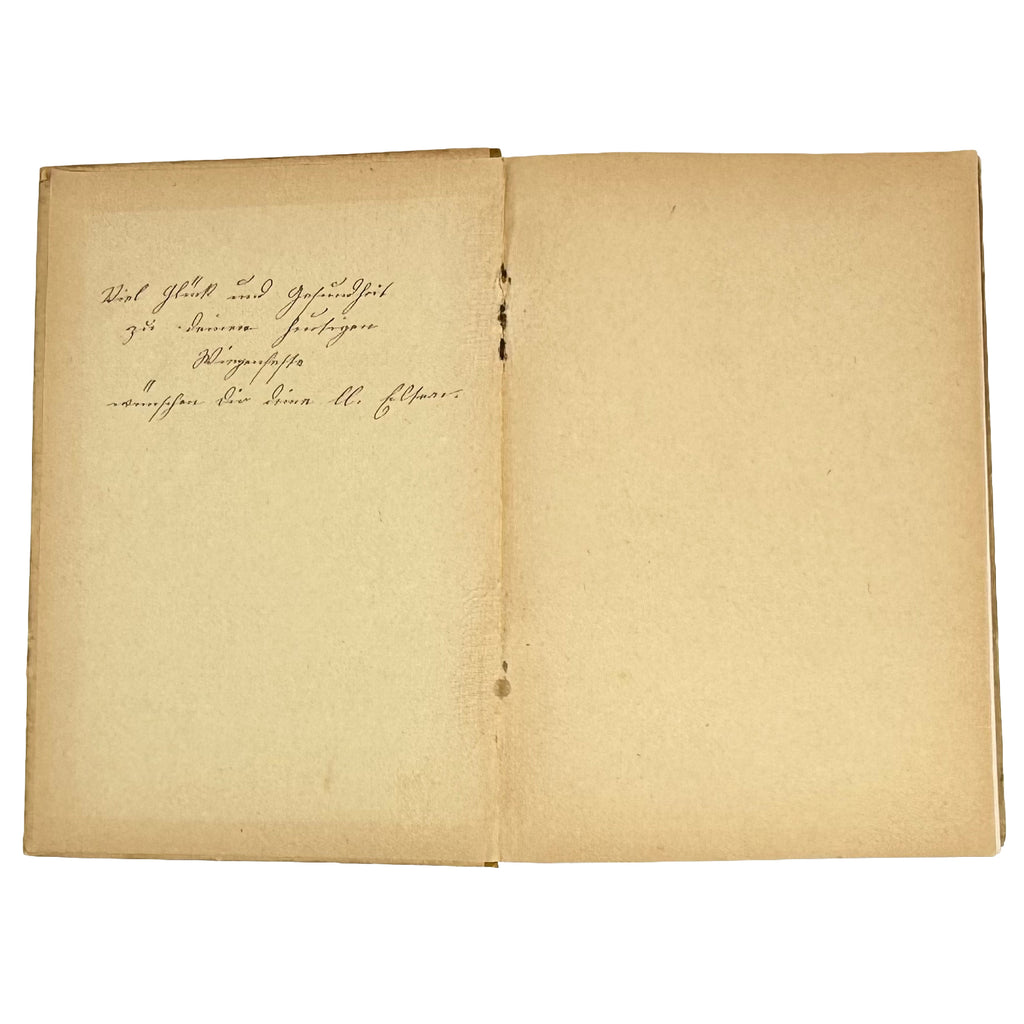 Viel Glück und Gesundheit
zu deinem heutigen
Wiegenfeste
wünschen dir deine ll. Eltern.